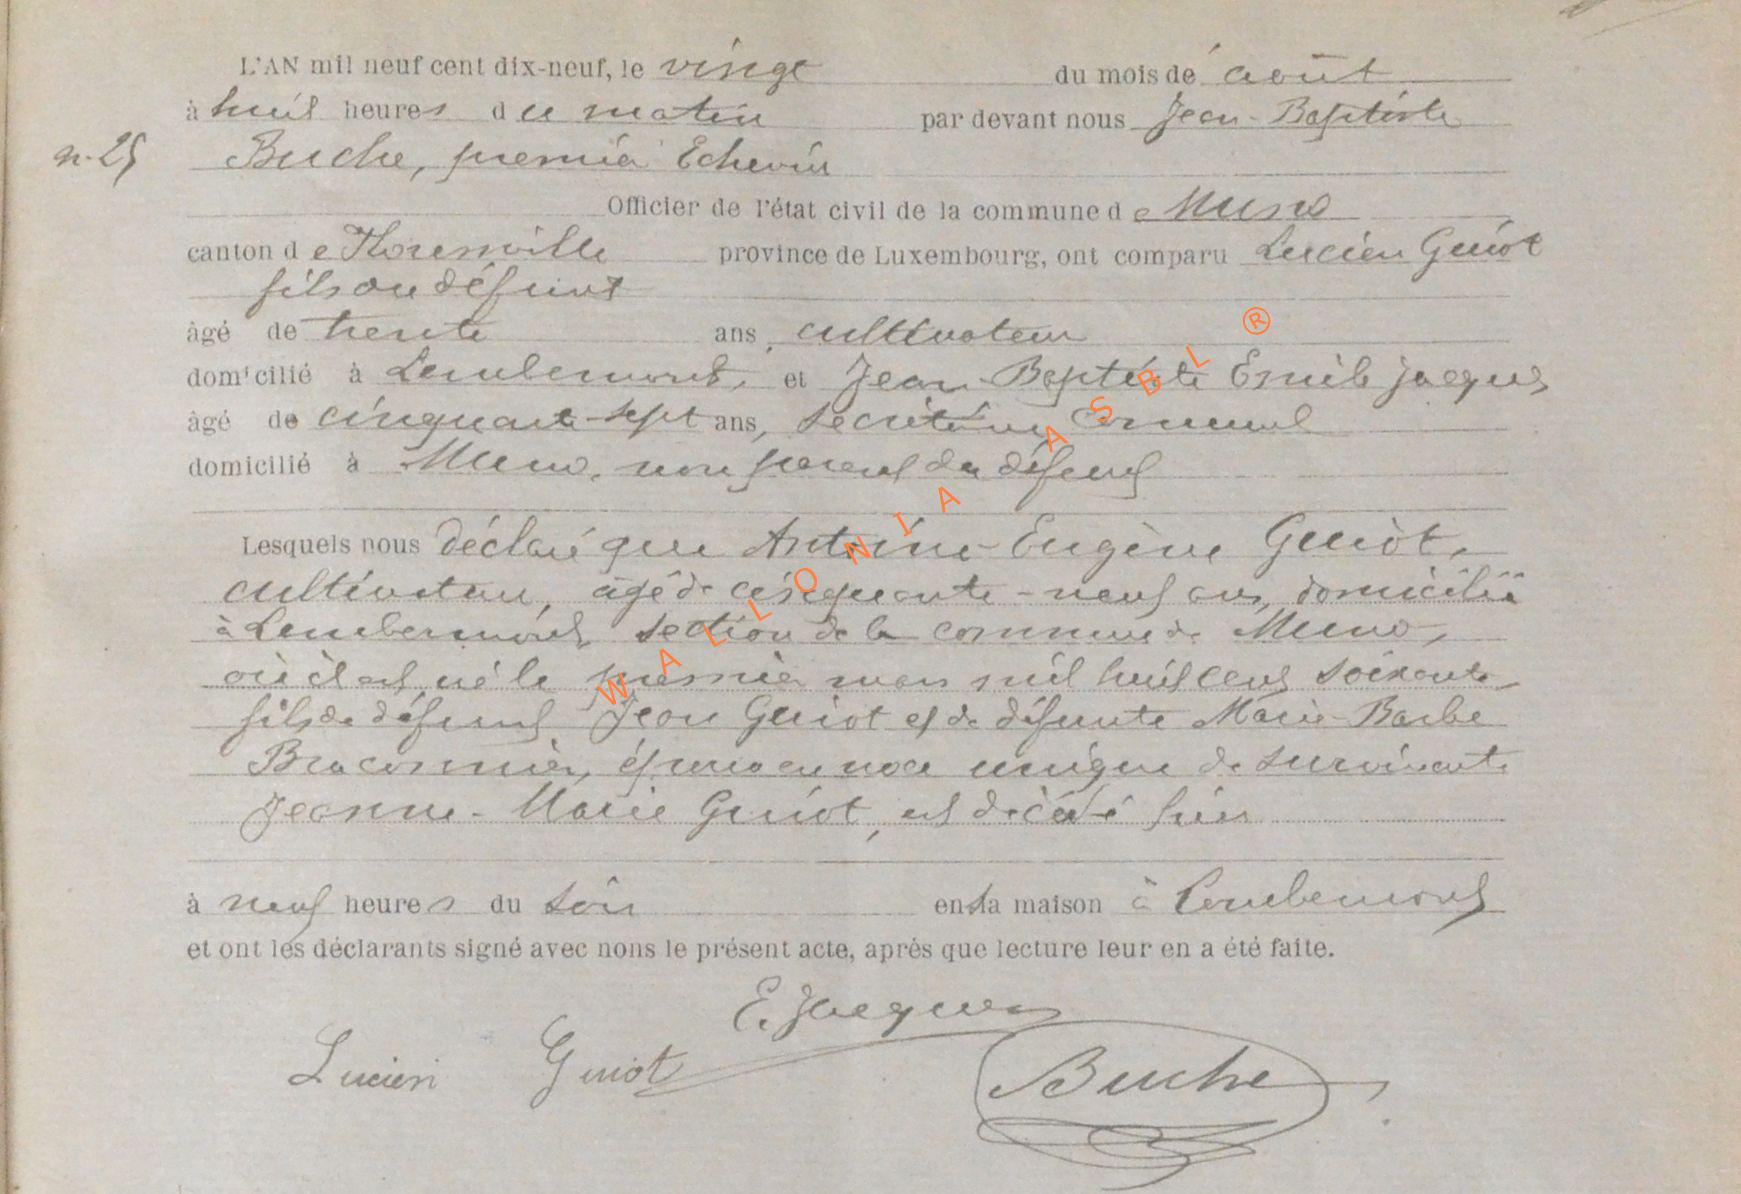 L'AN mil neuf cent dix-neuf, le vingt du mois de août
à huit heures du matin par devant nous Jean-Baptiste
n. 25 Buche, premier Echevin
Officier de l'état civil de la commune de Muno
canton de Florenville province de Luxembourg, ont comparu Lucien Guiot
fils du défunt
âgé de trente ans, cultivateur
domicilié à Lambermont, et Jean-Baptiste Emile Jacques
âgé de cinquante-sept ans, secrétaire communal
domicilié à Muno, non parent du défunt
Lesquels nous déclaré que Antoine-Eugène Guiot,
cultivateur, âgé de cinquante-neuf ans, domicilié
à Lambermont, section de la commune de Muno,
où il est né le premier mars mil huit cent soixante
fils de défunt Jean Guiot et de défunte Marie-Barbe
Braconnier, époux en noce unique de survivante
Jeanne-Marie Guiot, est décédé hier
à neuf heures du soir en sa maison à Lambermont
et ont les déclarants signé avec nous le présent acte, après que lecture leur en a été faite.
E. Jacques
Lucien Guiot
Buche
WALLONIA ASBL ®